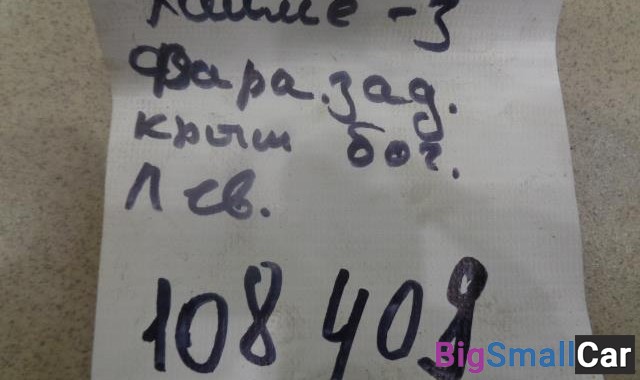 Фара.зад.
крыш бог.
Лев.
108 409
BigSmallCar